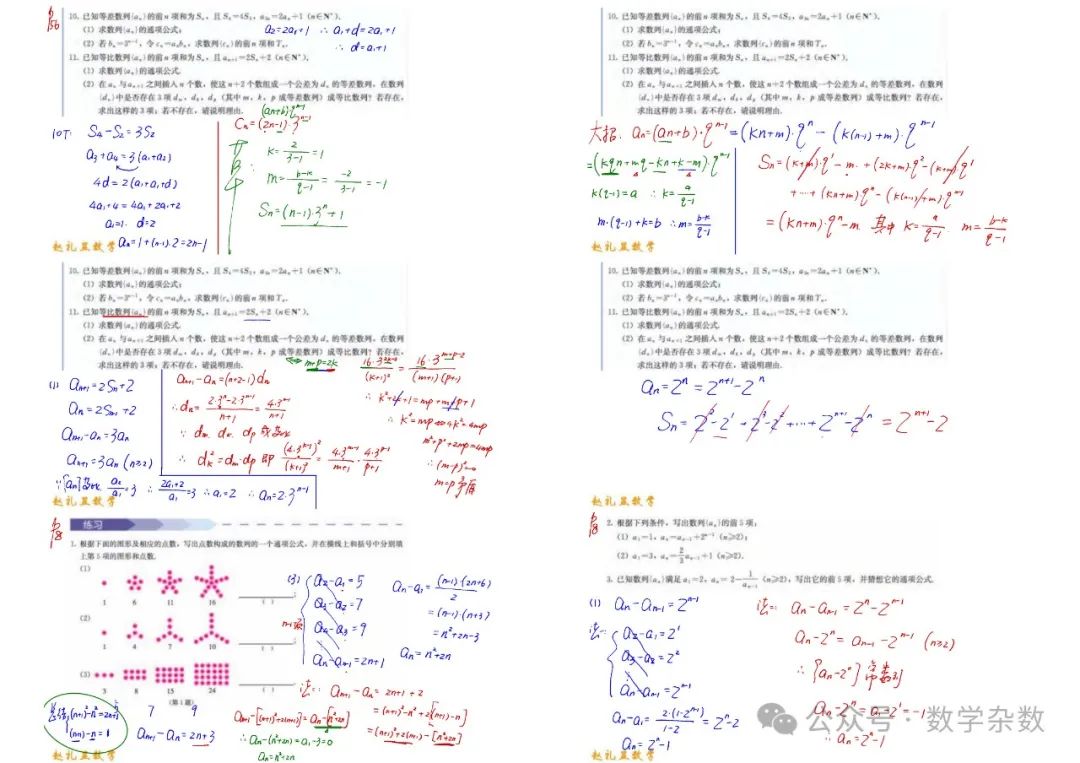 P56
10. 已知等差数列{aₙ}的前n项和为Sₙ,且S₄=4S₂,a₂ₙ=2aₙ+1(n∈N*).
(1) 求数列{aₙ}的通项公式;
(2) 若bₙ=3ⁿ⁻¹,令cₙ=aₙbₙ,求数列{cₙ}的前n项和Tₙ.
11. 已知等比数列{aₙ}的前n项和为Sₙ,且aₙ₊₁=2Sₙ+2(n∈N*).
(1) 求数列{aₙ}的通项公式.
(2) 在aₙ与aₙ₊₁之间插入n个数,使这n+2个数组成一个公差为dₙ的等差数列,在数列
{dₙ}中是否存在3项dₘ,dₖ,dₚ(其中m,k,p成等差数列)成等比数列?若存在,
求出这样的3项;若不存在,请说明理由.
a₂=2a₁+1 ∴a₁+d=2a₁+1
∴d=a₁+1
S₄-S₂=3S₂
a₃+a₄=3(a₁+a₂)
4d=2(a₁+a₁+d)
4a₁+4=4a₁+2a₁+2
a₁=1. d=2
aₙ=1+(n-1)·2=2n-1
(an+b)qⁿ⁻¹
Cₙ=(2n-1)·3ⁿ⁻¹
k=2/(3-1)=1
m=(b-k)/(q-1)=-2/(3-1)=-1
Sₙ=(n-1)·3ⁿ+1
赵礼显数学
10. 已知等差数列{aₙ}的前n项和为Sₙ,且S₄=4S₂,a₂ₙ=2aₙ+1(n∈N*).
(1) 求数列{aₙ}的通项公式;
(2) 若bₙ=3ⁿ⁻¹,令cₙ=aₙbₙ,求数列{cₙ}的前n项和Tₙ.
11. 已知等比数列{aₙ}的前n项和为Sₙ,且aₙ₊₁=2Sₙ+2(n∈N*).
(1) 求数列{aₙ}的通项公式.
(2) 在aₙ与aₙ₊₁之间插入n个数,使这n+2个数组成一个公差为dₙ的等差数列,在数列
{dₙ}中是否存在3项dₘ,dₖ,dₚ(其中m,k,p成等差数列)成等比数列?若存在,
求出这样的3项;若不存在,请说明理由.
大招: aₙ=(an+b)·qⁿ⁻¹=(kn+m)·qⁿ-(k(n-1)+m)·qⁿ⁻¹
=(kqn+mq-kn+k-m)·qⁿ⁻¹
k(q-1)=a ∴k=a/(q-1)
m·(q-1)+k=b ∴m=(b-k)/(q-1)
Sₙ=(k+m)·q¹-m+(2k+m)·q²-(k+m)q¹
+····+(kn+m)qⁿ-(k(n-1)+m)qⁿ⁻¹
=(kn+m)·qⁿ-m 其中 k=a/(q-1) m=(b-k)/(q-1)
赵礼显数学
10. 已知等差数列{aₙ}的前n项和为Sₙ,且S₄=4S₂,a₂ₙ=2aₙ+1(n∈N*).
(1) 求数列{aₙ}的通项公式;
(2) 若bₙ=3ⁿ⁻¹,令cₙ=aₙbₙ,求数列{cₙ}的前n项和Tₙ.
11. 已知等比数列{aₙ}的前n项和为Sₙ,且aₙ₊₁=2Sₙ+2(n∈N*).
(1) 求数列{aₙ}的通项公式.
(2) 在aₙ与aₙ₊₁之间插入n个数,使这n+2个数组成一个公差为dₙ的等差数列,在数列
{dₙ}中是否存在3项dₘ,dₖ,dₚ(其中m,k,p成等差数列)成等比数列?若存在,
求出这样的3项;若不存在,请说明理由.
m+p=2k
(1) aₙ₊₁=2Sₙ+2
aₙ=2Sₙ₋₁+2
aₙ₊₁-aₙ=2aₙ
aₙ₊₁=3aₙ(n≥2)
∵{aₙ}等比 a₂/a₁=3 ∴(2a₁+2)/a₁=3 ∴a₁=2 ∴aₙ=2·3ⁿ⁻¹
aₙ₊₁-aₙ=(n+2-1)dₙ
∴dₙ=(2·3ⁿ-2·3ⁿ⁻¹)/(n+1)=4·3ⁿ⁻¹/(n+1)
∵dₘ. dₖ. dₚ 成等比
∴dₖ²=dₘ·dₚ 即 (4·3ᵏ⁻¹)²/(k+1)²=4·3ᵐ⁻¹/(m+1)·4·3ᵖ⁻¹/(p+1)
16·3²ᵏ⁻²/(k+1)²=16·3ᵐ⁺ᵖ⁻²/((m+1)(p+1))
∴k²+2k+1=mp+m+p+1
∴k²=mp⇔4k²=4mp
m²+p²+2mp=4mp
∴(m-p)²=0
m=p矛盾
赵礼显数学
10. 已知等差数列{aₙ}的前n项和为Sₙ,且S₄=4S₂,a₂ₙ=2aₙ+1(n∈N*).
(1) 求数列{aₙ}的通项公式;
(2) 若bₙ=3ⁿ⁻¹,令cₙ=aₙbₙ,求数列{cₙ}的前n项和Tₙ.
11. 已知等比数列{aₙ}的前n项和为Sₙ,且aₙ₊₁=2Sₙ+2(n∈N*).
(1) 求数列{aₙ}的通项公式.
(2) 在aₙ与aₙ₊₁之间插入n个数,使这n+2个数组成一个公差为dₙ的等差数列,在数列
{dₙ}中是否存在3项dₘ,dₖ,dₚ(其中m,k,p成等差数列)成等比数列?若存在,
求出这样的3项;若不存在,请说明理由.
aₙ=2ⁿ=2ⁿ⁺¹-2ⁿ
Sₙ=2²-2¹+2³-2²+····+2ⁿ⁺¹-2ⁿ=2ⁿ⁺¹-2
赵礼显数学
P8
练习
1. 根据下面的图形及相应的点数,写出点数构成的数列的一个通项公式,并在横线上和括号中分别填
上第5项的图形和点数.
(1)
1 6 11 16 ( )
(2)
1 4 7 10 ( )
(3)
3 8 15 24 ( )
(第1题)
(n+1)²-n²=2n+1
(n+1)-n=1
5 7 9
aₙ₊₁-aₙ=2n+3
(3) a₂-a₁=5
a₃-a₂=7
a₄-a₃=9
aₙ-aₙ₋₁=2n+1
n-1项
aₙ-a₁=(n-1)·(2n+6)/2
=(n-1)·(n+3)
=n²+2n-3
aₙ=n²+2n
法二: aₙ₊₁-aₙ=2n+1+2
=(n+1)²-n²+2[(n+1)-n]
=(n+1)²+2(n+1)-[n²+2n]
aₙ₊₁-[(n+1)²+2(n+1)]=aₙ-[n²+2n]
∴aₙ-(n²+2n)=a₁-3=0
aₙ=n²+2n
赵礼显数学
P8
2. 根据下列条件,写出数列{aₙ}的前5项:
(1) a₁=1,aₙ=aₙ₋₁+2ⁿ⁻¹(n≥2);
(2) a₁=3,aₙ=2/3aₙ₋₁+1(n≥2).
3. 已知数列{aₙ}满足a₁=2,aₙ=2-1/aₙ₋₁(n≥2),写出它的前5项,并猜想它的通项公式.
(1) aₙ-aₙ₋₁=2ⁿ⁻¹
法一: a₂-a₁=2¹
a₃-a₂=2²
aₙ-aₙ₋₁=2ⁿ⁻¹
aₙ-a₁=2·(1-2ⁿ⁻¹)/(1-2)=2ⁿ-2
aₙ=2ⁿ-1
法二: aₙ-aₙ₋₁=2ⁿ-2ⁿ⁻¹
aₙ-2ⁿ=aₙ₋₁-2ⁿ⁻¹ (n≥2)
∴{aₙ-2ⁿ}常数列
aₙ-2ⁿ=a₁-2¹=-1
∴aₙ=2ⁿ-1
公众号·数学杂数
赵礼显数学